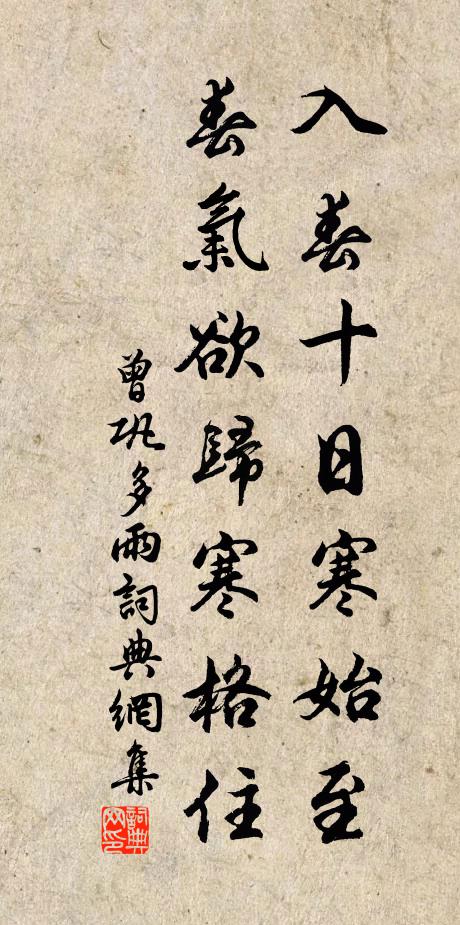 入春十日寒始至
春氣欲歸寒格住
曾巩多雨詞典網集
詞典網印